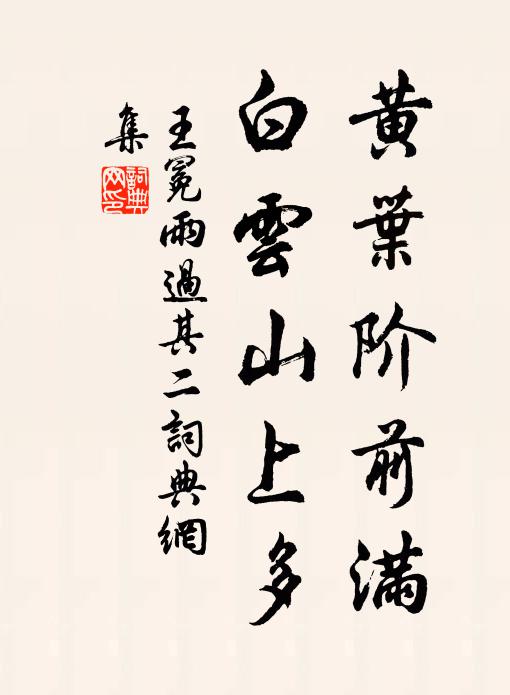 黄葉阶前满
白雲山上多
王冕雨過其二詞典網
集
詞典网印